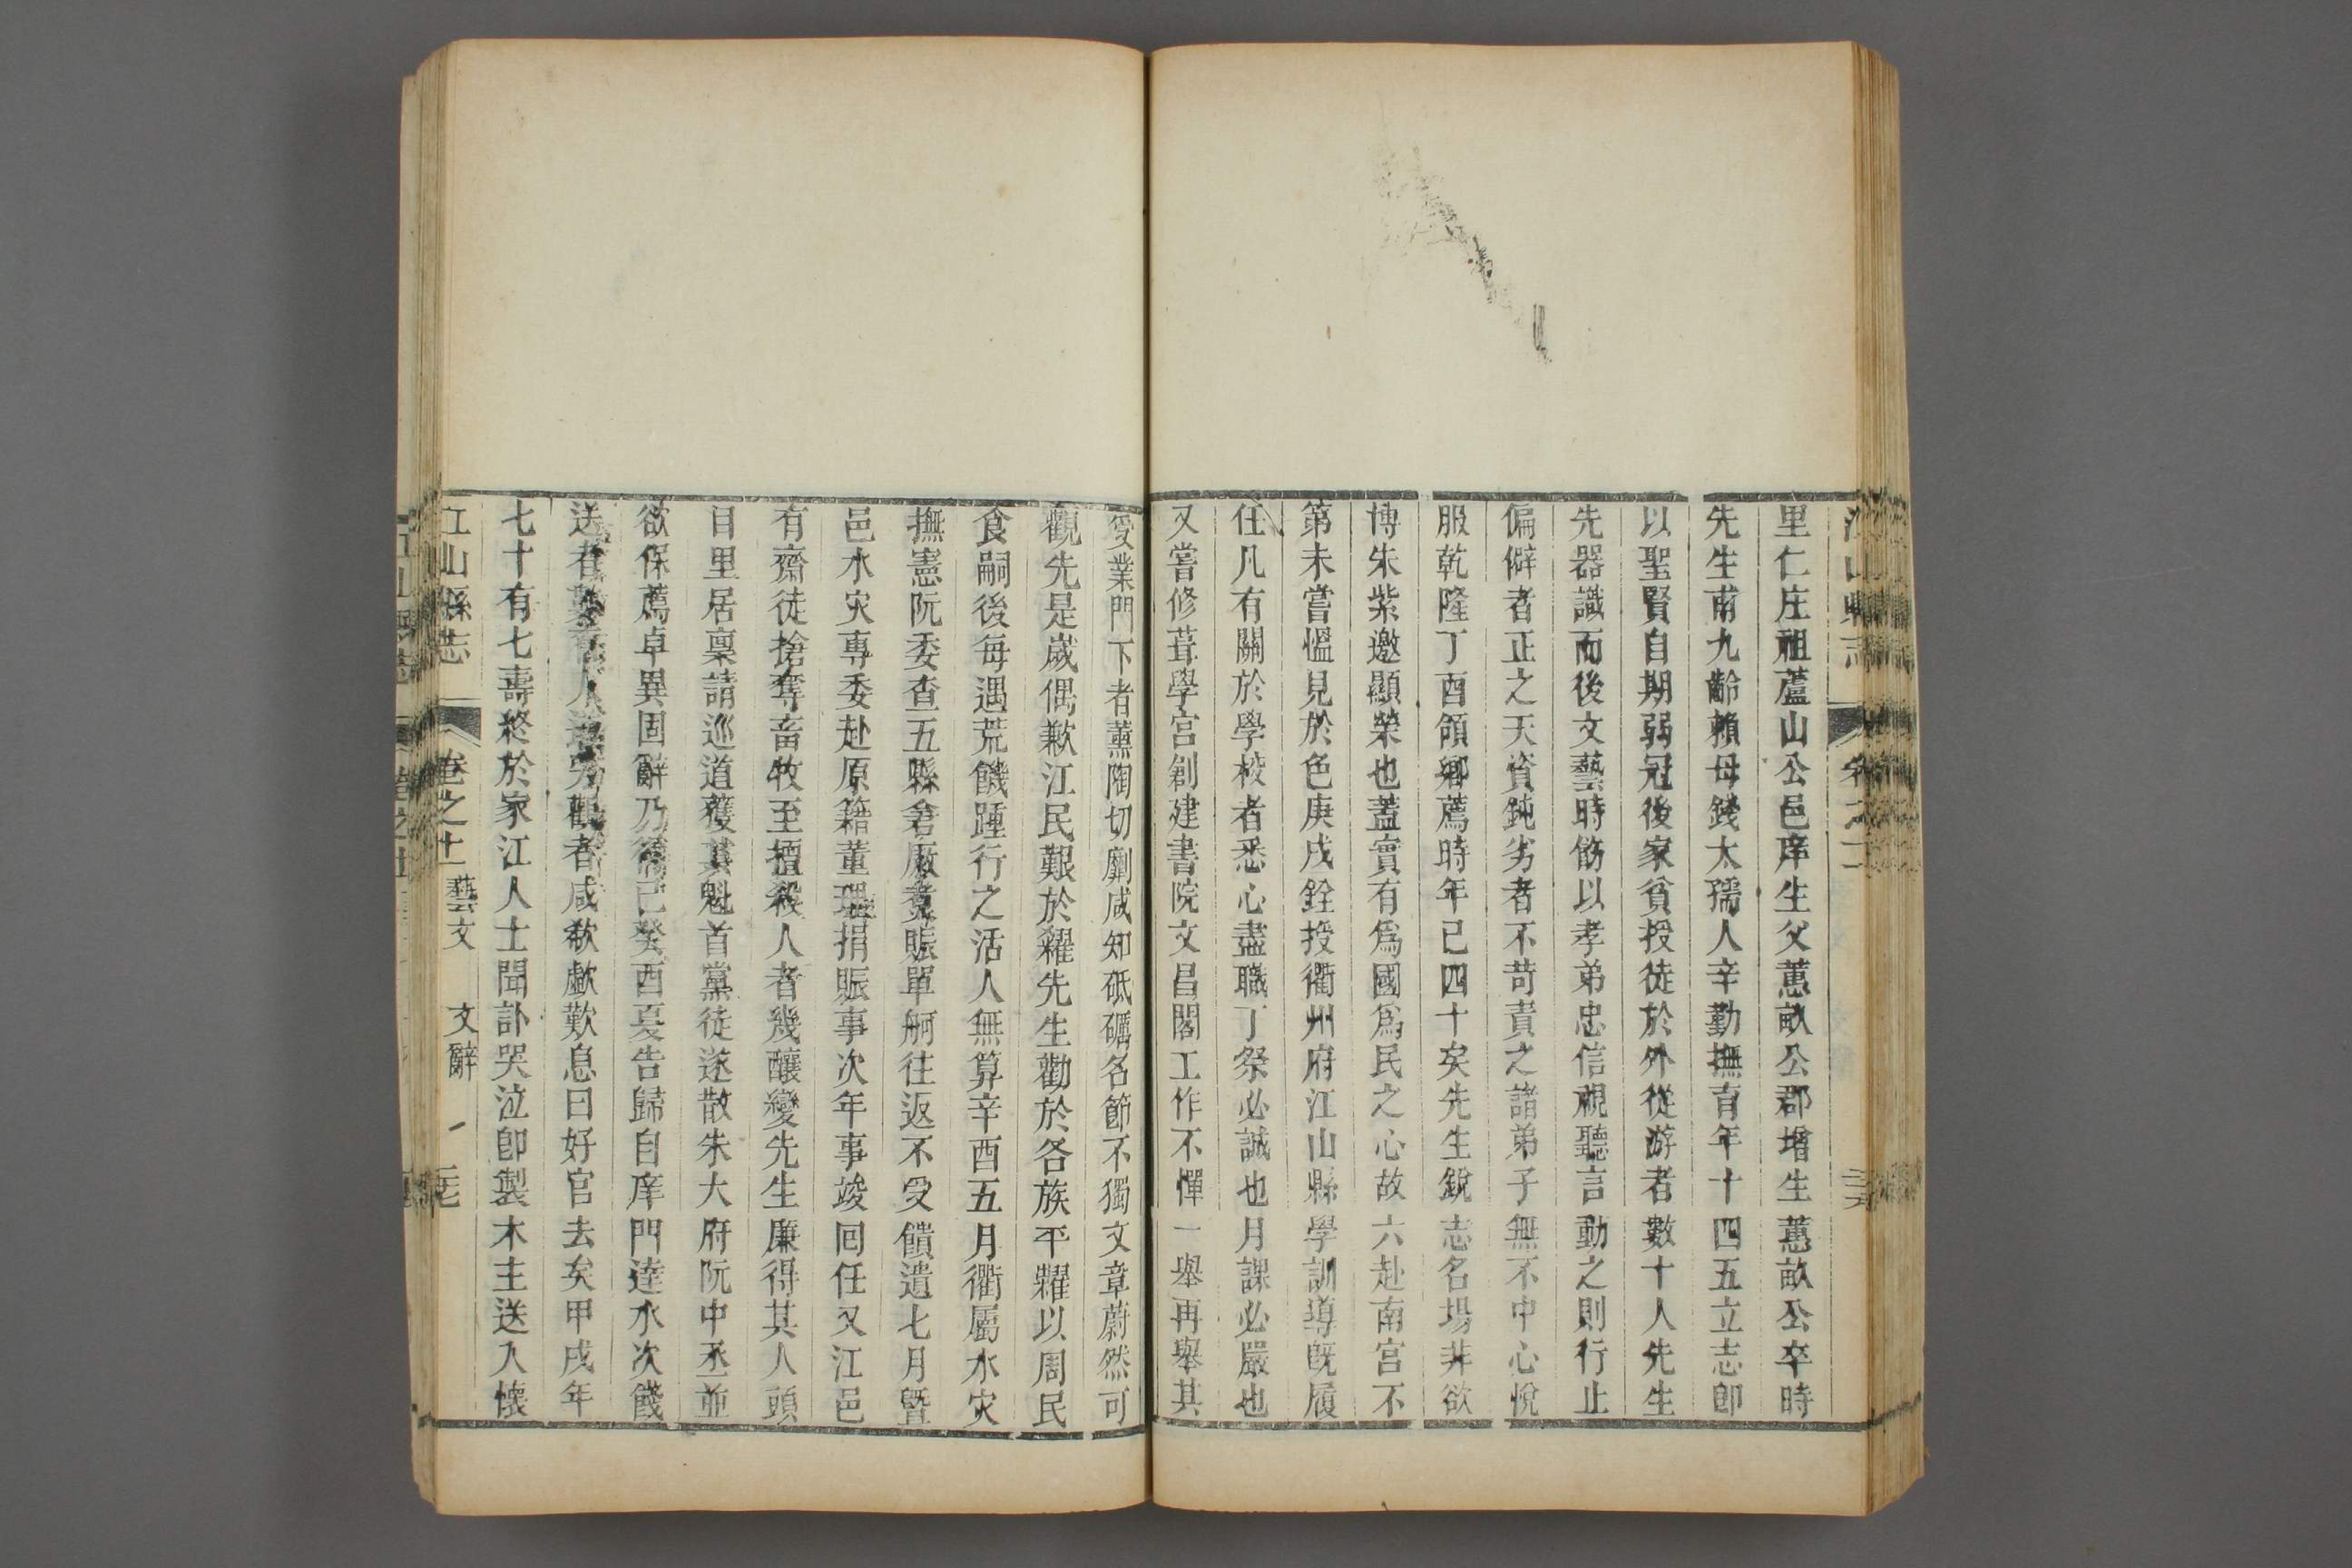 里仁庄祖蘆山公邑庠生父蕙畝公郡增生蕙畝公卒時
先生甫九齡賴母錢太孺人辛勤撫育年十四五立志卽
以聖賢自期弱冠後家貧授徒於外從游者數十人先生
先器識而後文藝時飭以孝弟忠信視聽言動之則行止
偏僻者正之天資鈍劣者不苛責之諸弟子無不中心悅
服乾隆丁酉領鄉薦時年已四十矣先生銳志名場非欲
博朱紫邀顯榮也蓋實有爲國爲民之心故六赴南宮不
第未嘗慍見於色庚戌銓授衢州府江山縣學訓導旣履
任凡有關於學校者悉心盡職丁祭必誠也月課必嚴也
又嘗修葺學宮創建書院文昌閣工作不憚一舉再舉其
受業門下者薰陶切劘咸知砥礪名節不獨文章蔚然可
觀先是歲偶歉江民艱於糴先生勸於各族平糶以周民
食嗣後每遇荒饑踵行之活人無算辛酉五月衢屬水灾
撫憲阮委查五縣倉廒竟賑單舸往返不受饋遺七月暨
邑水灾專委赴原籍董理捐賑事次年事竣囘任又江邑
有齋徒搶奪畜牧至擅殺人者幾釀變先生廉得其人頭
目里居稟請巡道獲其魁首黨徒遂散朱大府阮中丞並
欲保薦卓異固辭乃已癸酉夏告歸自庠門達水次餞
送者人觀者咸欷歔歎息曰好官去矣甲戌年
七十有七壽終於家江人士聞訃哭泣卽製木主送入懷
江山縣志 卷之十一 藝文 文辭 一 三七